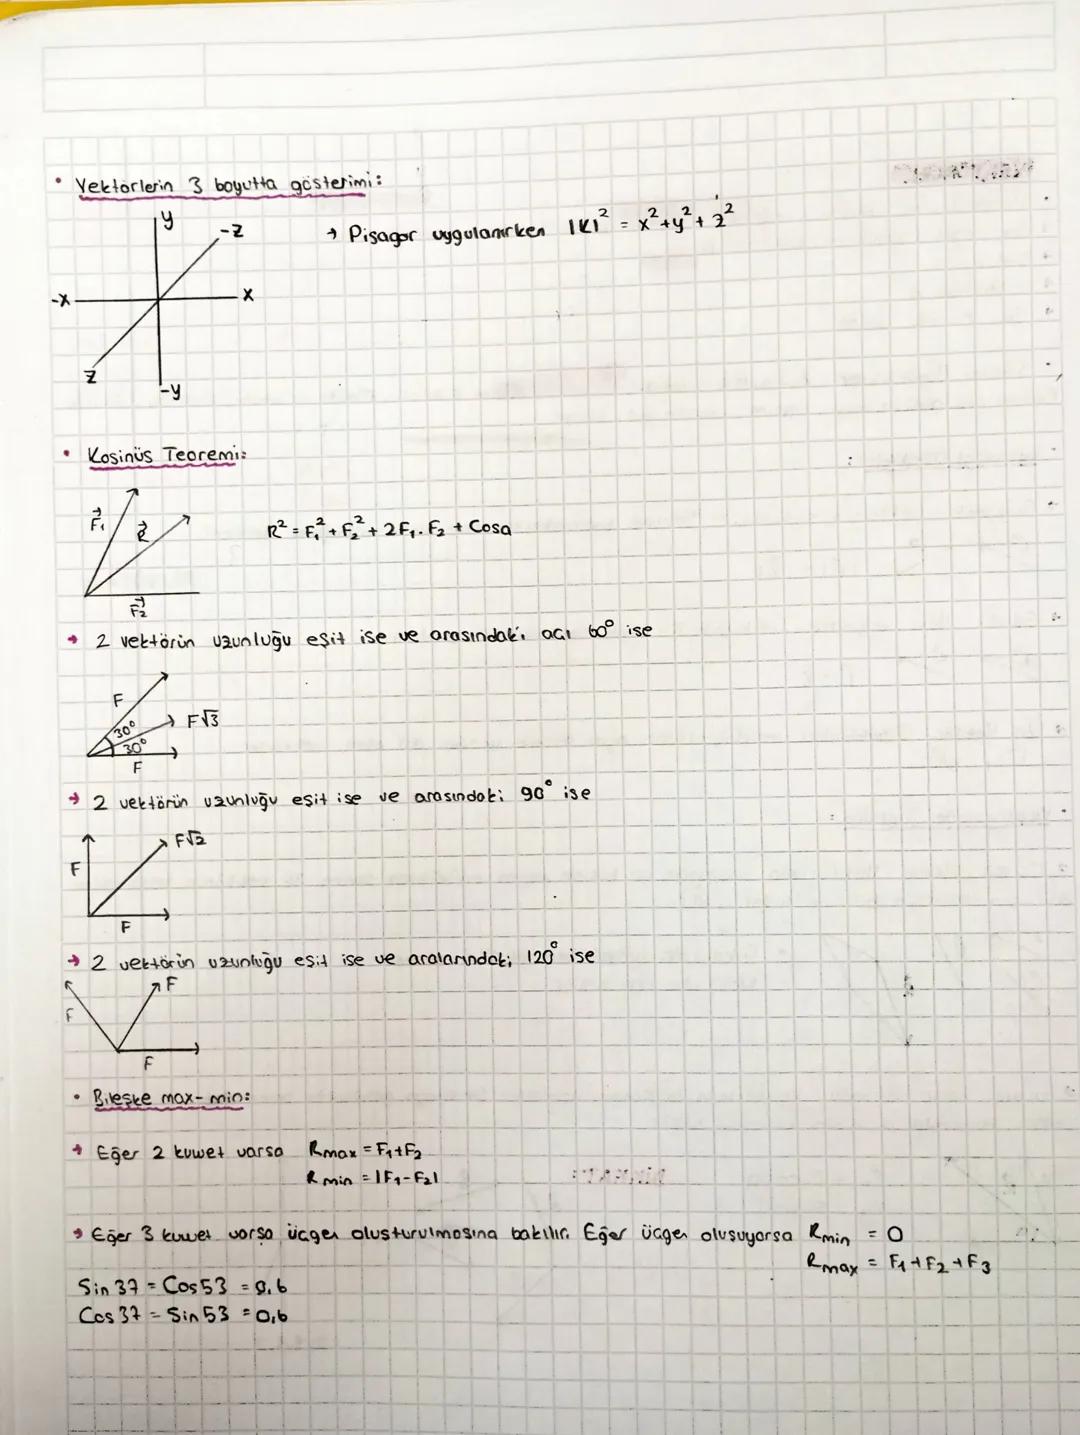 • Vektörlerin 3 boyutta gösterimi:
y
-z
→ Pisagor uygulanırken |K|² = x²+y²+z²
-x
x
z
-y
• Kosinüs Teoremi:
F₁
R
R² = F₁² + F₂² + 2F₁. F₂ + Cosa
F₂
→ 2 vektörün uzunluğu eşit ise ve arasındaki açı 60° ise
F
30°
F√3
30°
F
→ 2 vektörün uzunluğu eşit ise ve arasındaki 90° ise
F√2
F
F
→ 2 vektörün uzunluğu eşit ise ve aralarındaki 120° ise
F
F
F
• Bileşke max-min:
→ Eğer 2 kuvvet varsa Rmax = F₁+F₂
R min = |F₁-F₂|
→ Eğer 3 kuvvet varsa üçgen oluşturulmasına bakılır. Eğer üçgen oluşuyorsa Rmin = 0
Rmax = F₁+F₂+F₃
Sin 37 = Cos 53 = 0,6
Cos 37 = Sin 53 = 0,6